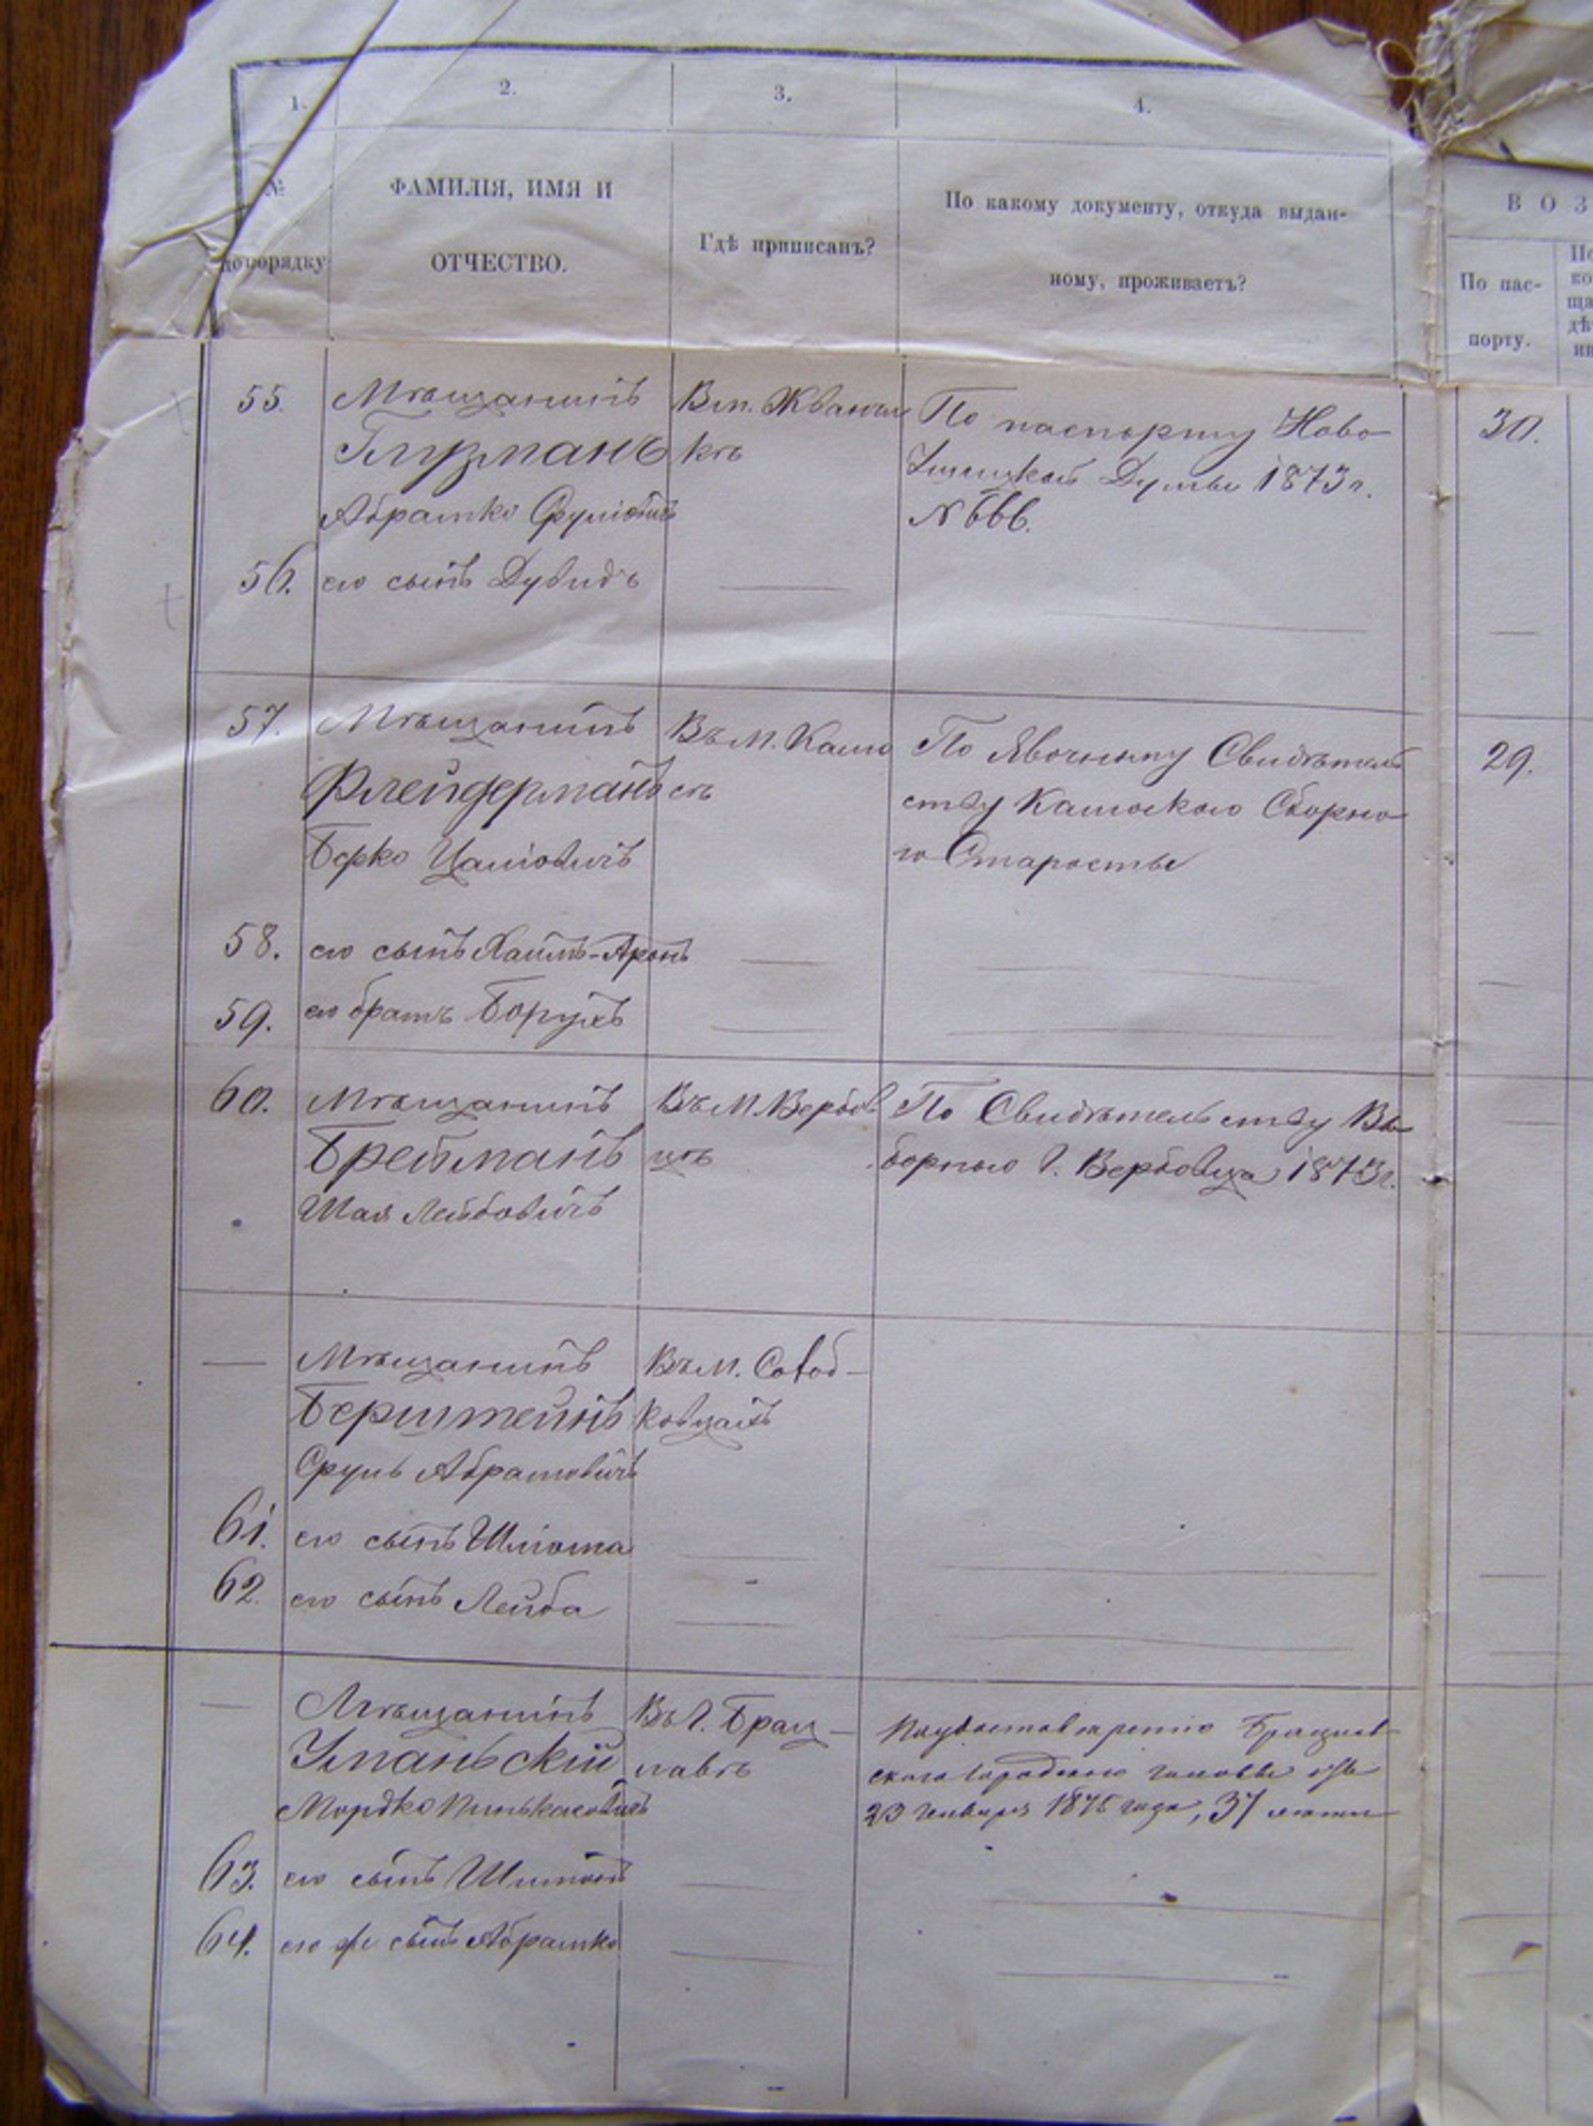 1. 2. 3. 4.
№
по порядку
ФАМИЛІЯ, ИМЯ И
ОТЧЕСТВО.
Гдѣ приписанъ?
По какому документу, откуда выдан-
ному, проживаетъ?
В О З
По пас-
порту.
55. Мѣщанинъ
Глузманъ
Абрамко Сруліовичъ
В м. Жванчи
кѣ
По паспорту Ново
Ушицкой Думы 1873 г.
N 666.
30.
56. его сынъ Дувидъ
57. Мѣщанинъ
Флейдерманъ
Берко Цаліовичъ
Въ м.
По Явочному Свидѣтель
ству Сборно
го Старосты
29.
58. его сынъ Хаимъ-Аронъ
59. его братъ Борухъ
60. Мѣщанинъ
Брейтманъ
Шая Лейбовичъ
Въ м. Вербов
цѣ
По Свидѣтельству Вы
борного Вербовца 1873 г.
— Мѣщанинъ
Берштейнъ
Сруль Абрамовичъ
Въ м.
ковцахъ
61. его сынъ Шліома
62. его сынъ Лейба
— Мѣщанинъ
Уманьскій
Мордко Пинькасовичъ
Въ г. Брац-
лавѣ
По удостоверенію Брацлав-
ского городского головы
23 Января 1875 года, 37
63. его сынъ Шимонъ
64. его же сынъ Абрамко